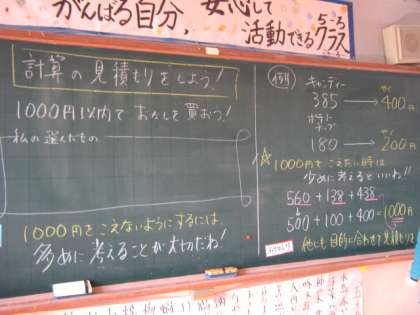 がんばる自分, 安心して
活動できるクラス
計算の見積もりをしよう!
1000円以内でおかしを買おう!
私の選んだもの
1000円をこえないようにするには、
多めに考えることが大切だね!
例
キャンディー
385 → 約400円
ポテト
チップ
180 → 約200円
☆1000円をこえたい時は
少めに考えるといい!!
560 + 138 + 438
500 + 100 + 400 = 1000円
他にも目的に合わせて見積もりを